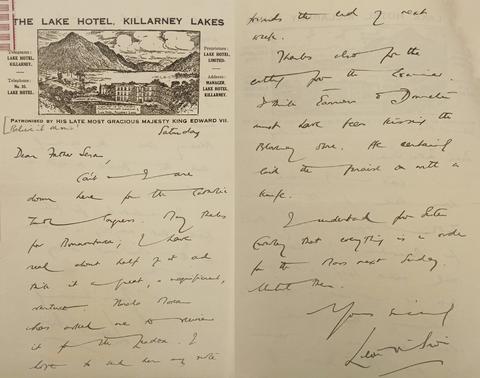 THE LAKE HOTEL, KILLARNEY LAKES
Telegrams:
LAKE HOTEL,
KILLARNEY.
Telephone:
No. 35.
LAKE HOTEL.
Proprietors:
LAKE HOTEL,
LIMITED.
Address:
MANAGER,
LAKE HOTEL,
KILLARNEY.
PATRONISED BY HIS LATE MOST GRACIOUS MAJESTY KING EDWARD VII.
Saturday
Dear Father Senan,
I are
down here for the Catholic
Truth Congress. Many thanks
for Bonaventura; I have
read about half of it and
think it a great, a magnificent,
venture.
has asked me to review
it for the I
hope to send her my note
towards the end of next
week.
Thanks also for the
cutting from the Examiner.
I think
must have been kissing the
Blarney Stone. He certainly
laid the praise on with a
knife.
I understand from Sister
that everything is in order
for the Mass next Sunday.
Until then.
Yours sincerely